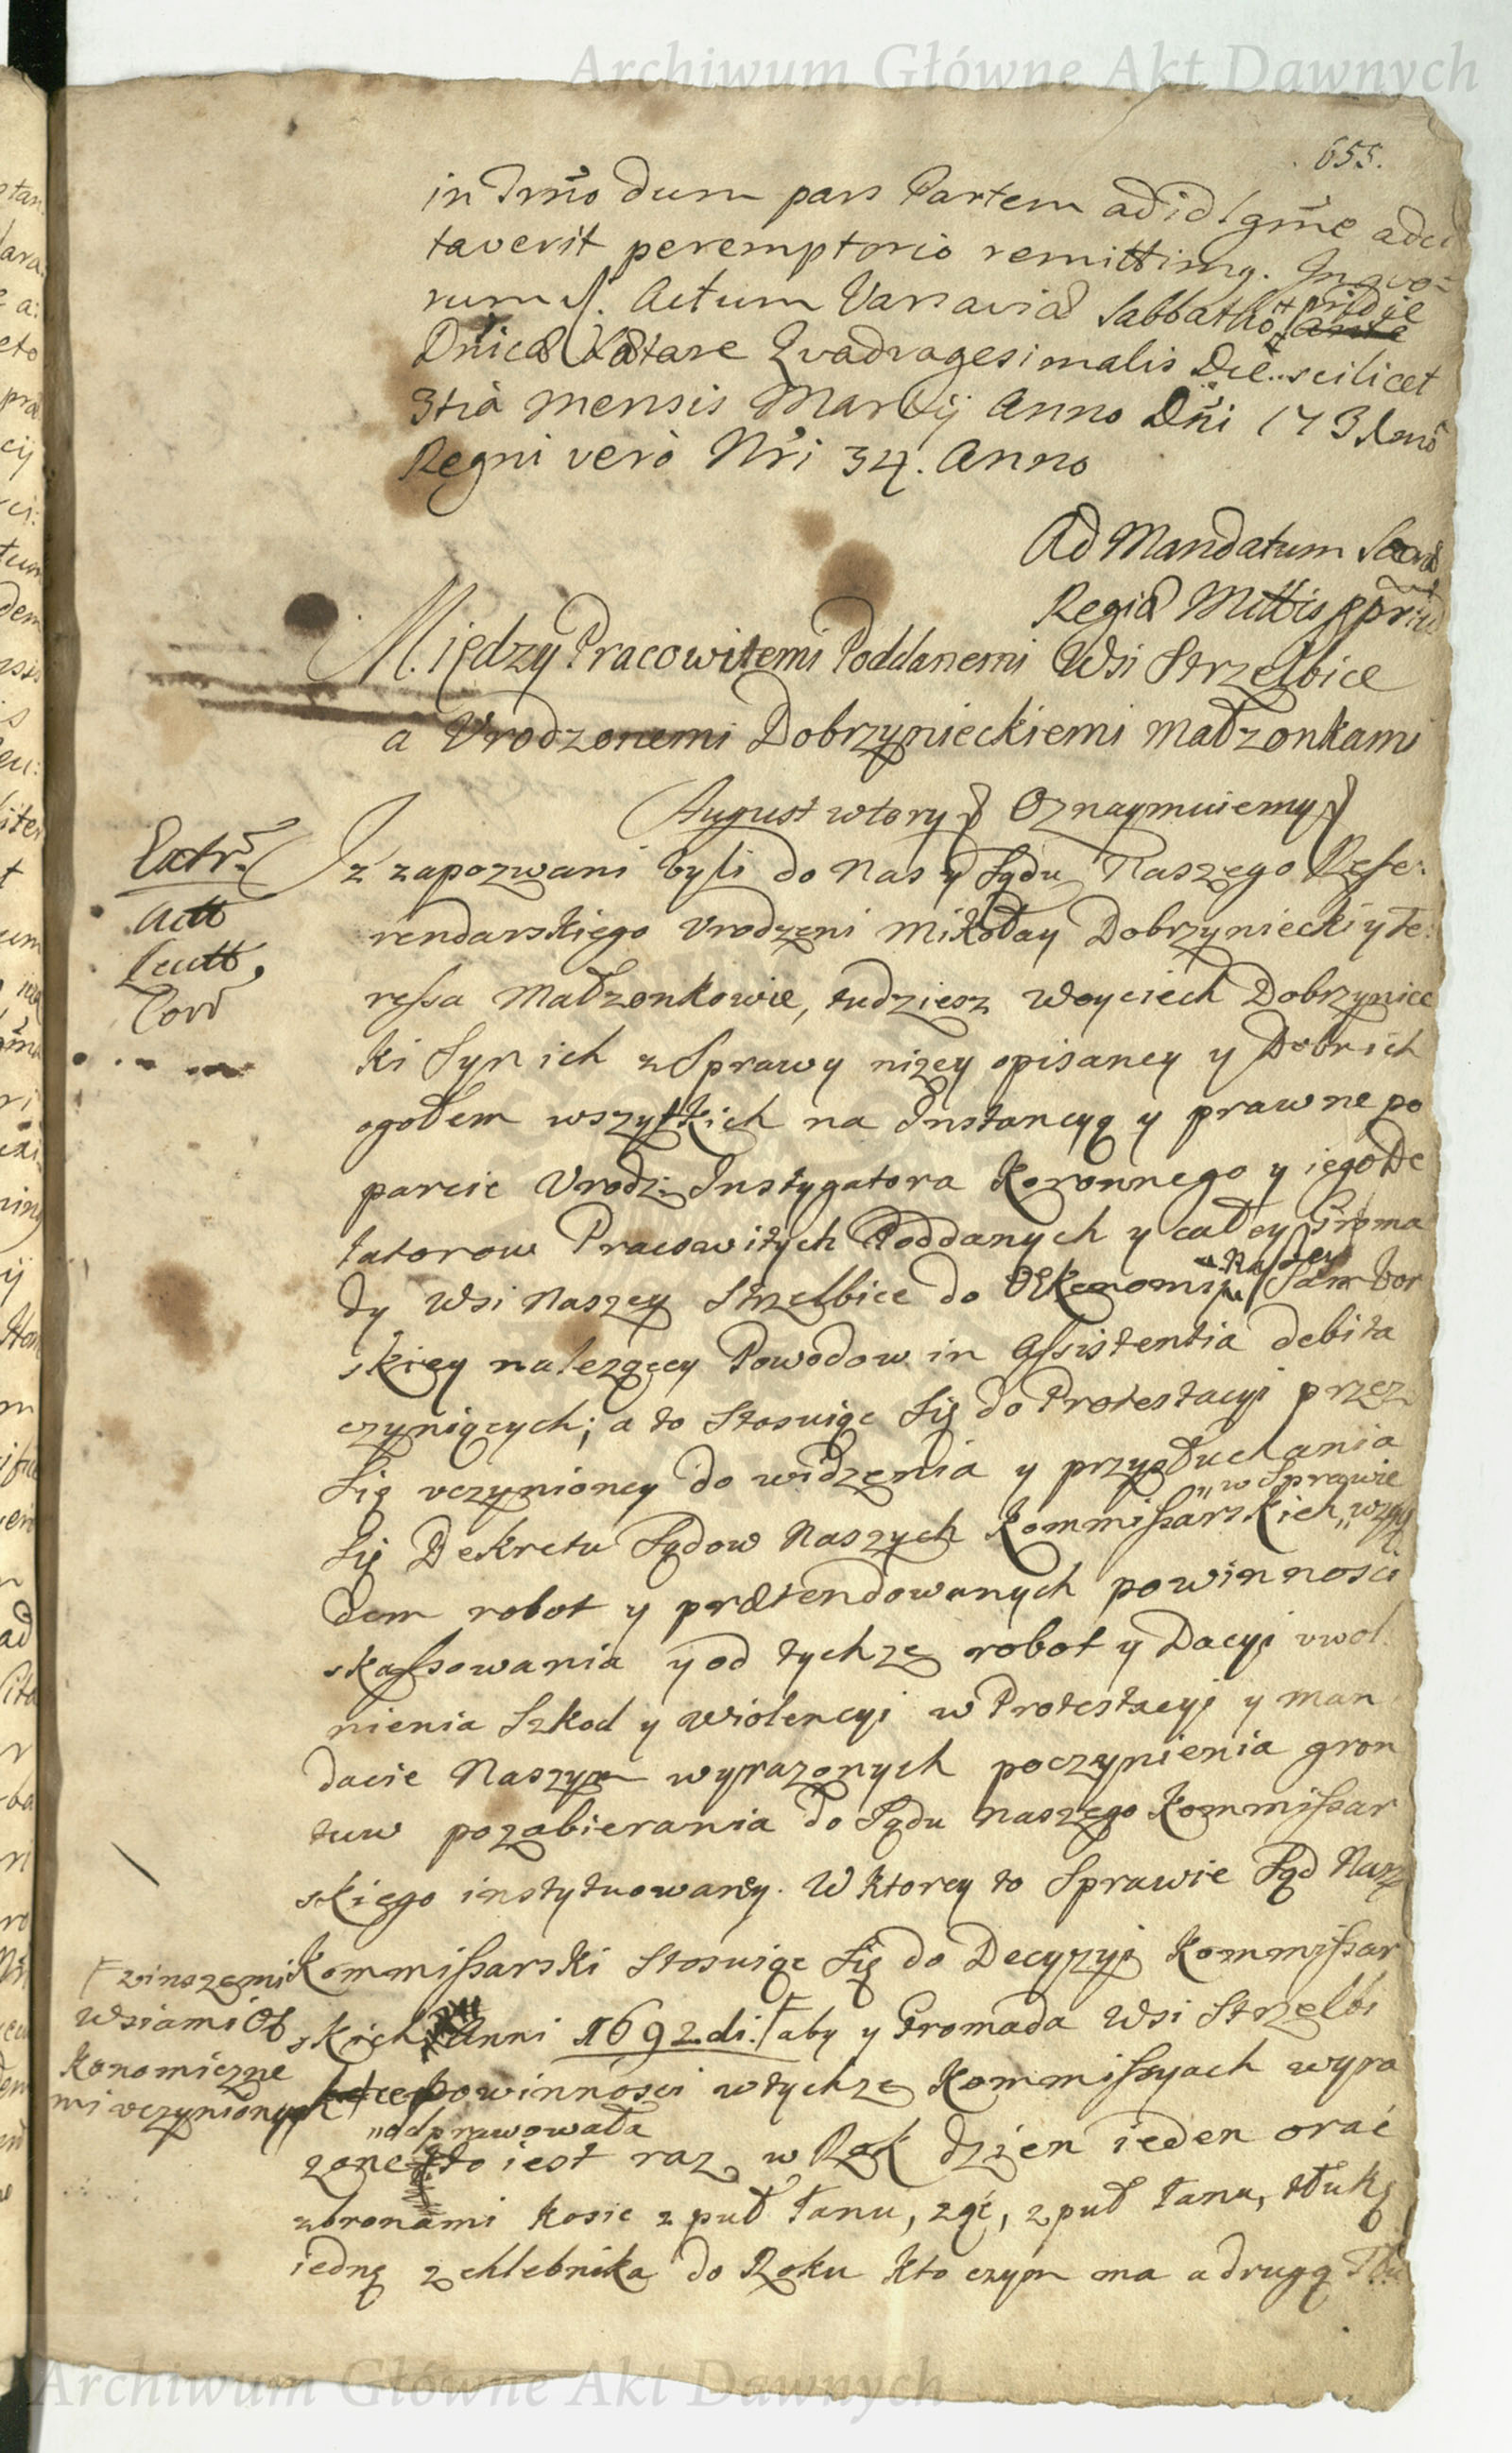 Archiwum Główne Akt Dawnych
655.
in Trno dum pars Partem ad id lgme adci
taverit peremptorie remittimg. In quo-
rum fl. Actum Varsaviæ Sabbatho ante pridie
Dnicæ Lætare Quadragesimalis Die scilicet
3tia mensis Martij Anno Dni 1731mo
Regni vero Nri 34. Anno
Ad Mandatum Sacræ
Regiæ Mttis ppriu
Między Pracowitemi Poddanemi Wsi Strzelbice
a Vrodzonemi Dobrzynieckiemi Małzonkami
August wtory Oznaymuiemy
Iz zapozwani byli do Nas y Sądu Naszego Refe:
rendarskiego Vrodzeni Mikołay Dobrzyniecki y Te:
ressa Małzonkowie, tudziesz Woyciech Dobrzyniec
ki Syn ich z Sprawy nizey opisaney y Dobr ich
ogołem wszytkich na Instancyą y prawne po
parcie Vrodz: Instygatora Koronnego y iego De
latorow Pracowitych Poddanych y całey Groma
dy Wsi Naszey Strzelbice do Œkonomij Naszey Sambor
skiey nalezącey Powodow in Assistentia debita
czyniących; a to Stosuiąc Się do Protestacyi przez
Się vczynioney do widzenia y przysłuchania
Się Dekretu Sądow Naszych Kommissarskich „w Sprawie „wzglę
dem robot y prætendowanych powinnosci
skassowania y od tychze robot y Dacyi vwol
nienia Szkod y violencyi w Protestacyi y Man
dacie Naszym wyrazonych poczynienia gron
tuw pozabierania do Sądu naszego Kommissar
skiego instytuowaney. W ktorey to Sprawie Sąd Nasz
Kommissarski Stosuiąc Się do Decyzyi Kommissar
skich Anni 1692.di. aby y Gromada Wsi Strzelbi
powinnosci w tychze Kommissyach wyra
zone „odprawowała to iest raz w Rok dzien ieden orać
z bronami kosic z puł łanu, ząć, z puł łanu, tłukę
iedną z chlebnika do Roku kto czym ma a drugą Tłu
Extr.
Actt
Lectt.
Corr
z inszemi
Wsiami Œ
konomiczne
mi vczynionych
Archiwum Główne Akt Dawnych